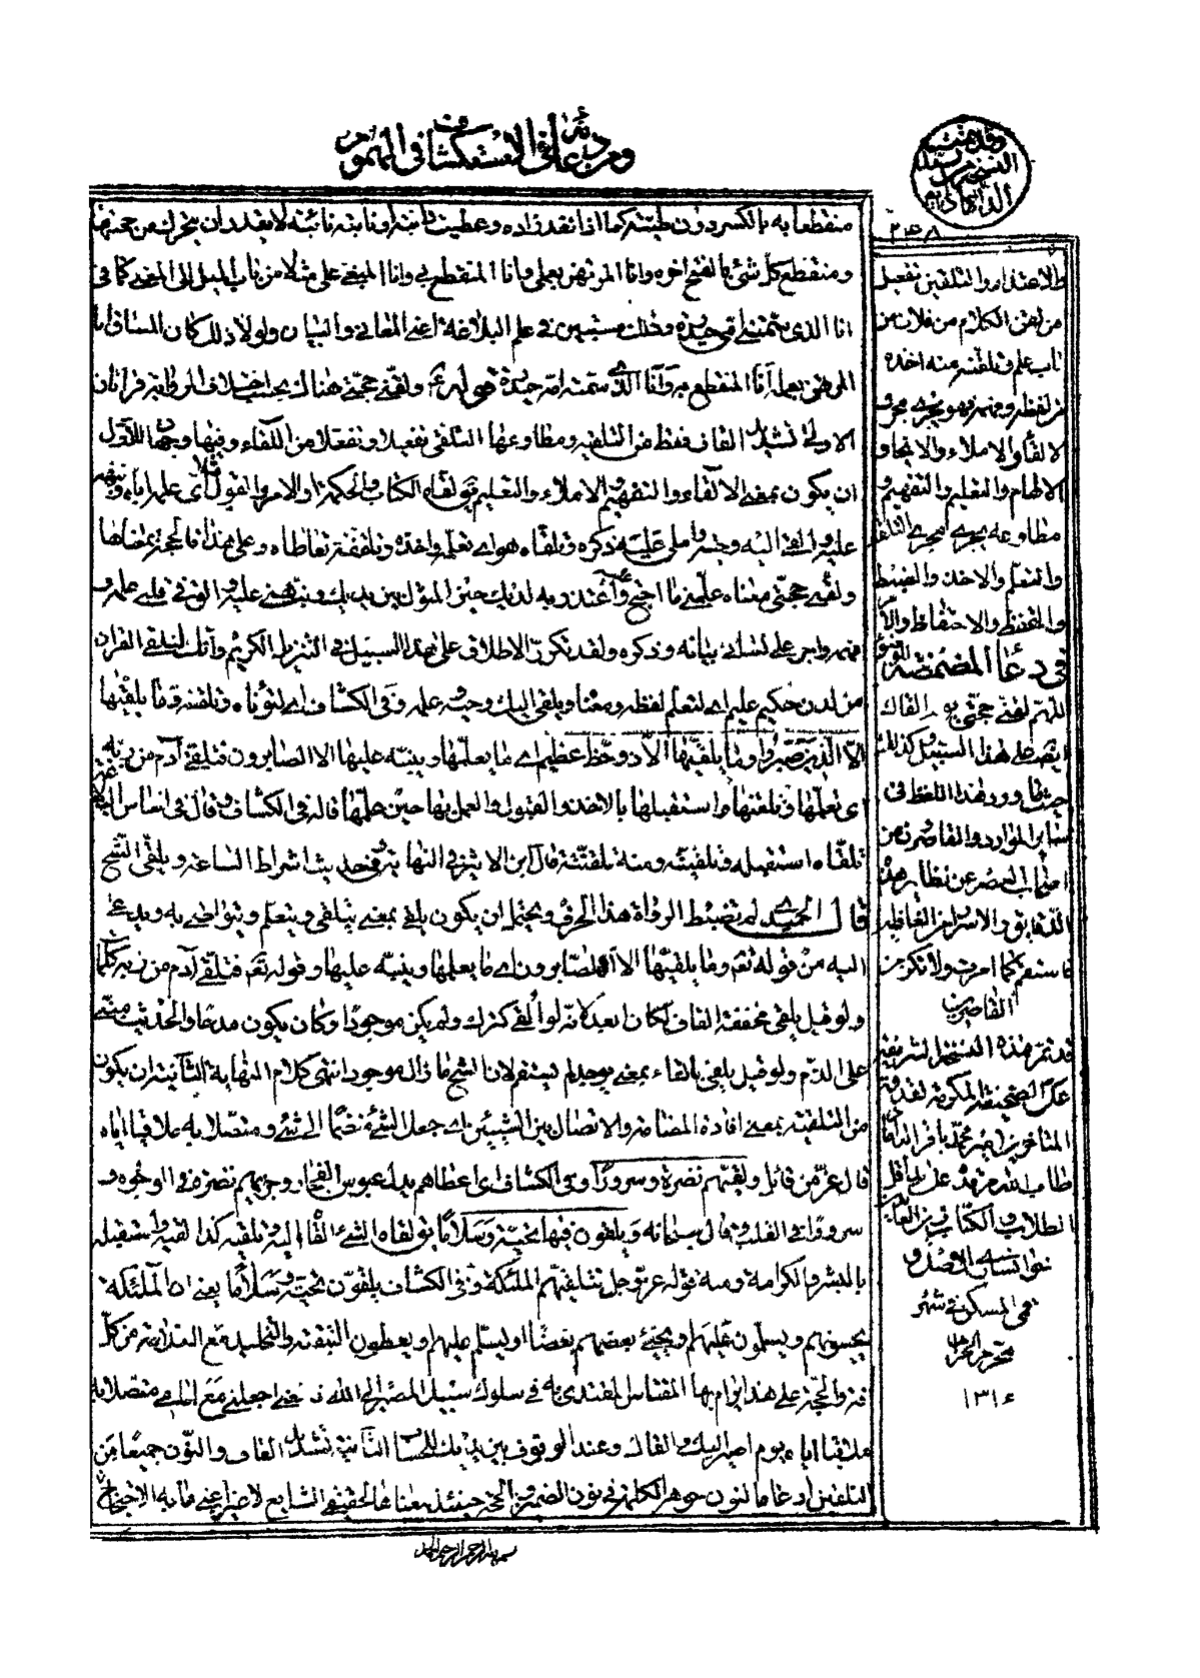 ومن دعائه في الاستكشاف الهموم
منقطعا به بالكسر دون طيته كما اذا نفد زاده وعطبت دابته او نابته نائبة لا يقدر ان يتحرك من جهتها
ومنقطع كل شئ بالفتح اخره وانا المرتهن بعملي وانا المنقطع بي وانا المبغي على مثلا من باب الميل الى المعنى كما في
انا الذي سمتني امي حيدرة وذلك مستبين في علم البلاغة اعني المعاني والبيان ولولا ذلك كان المساق انا
المرتهن بعمله انا المنقطع به وانا الذي سمته امه حيدرة قوله ولقني حجتي هناك بحسب اختلاف الرواية قراءتان
الاولى تشديد القاف فقط من التلقية ومطاوعها التلقي تفعيلا وتفعلا من اللقاء وفيها وجهان الاول
ان يكون بمعنى الالقاء والتفهيم والاملاء والتعليم تقول لقاه الكتاب والحكمة او الامر والقول مثلا اي علمه اياه ونبهه
عليه والقى اليه وجسر واملى عليه ذكره وتلقاه هو اي تعلمه واخذه وتلقفه وتعاطاه وعلى هذا فالحجة بمعناها
ولقني حجتي معناه علمني ما احتج واعتذر به لديك حين المثول بين يديك ونبهني عليه والق في قلبي علمه و
فهمه واجر على لساني بيانه وذكره ولقد تكرر الاطلاق على هذا السبيل في التنزيل الكريم وانك لتلقى القرآن
من لدن حكيم عليم اي لتعلم لفظه ومعناه ويلقى اليك وحيه وعلمه وفي الكشاف اي لتؤتاه وتلقنه وما يلقيها
الا الذين صبروا وما يلقيها الا ذو حظ عظيم اي ما يعلمها وينبه عليها الا الصابرون فتلقى آدم من ربه كلمات
اي تعلمها وتلقنها واستقبلها بالاخذ والقبول والعمل بها حين علمها قاله في الكشاف وقال في اساس البلاغة
تلقاه استقبله وتلقيته ومنه تلقنته قال ابن الاثير في النهاية في حديث اشراط الساعة ويلقى الشح
قال الحميدي لم تضبط الرواة هذا الحرف ويحتمل ان يكون يلقى بمعنى يتلقى ويتعلم ويتواصى به ويدعى
اليه من قوله تعالى وما يلقيها الا الصابرون اي ما يعلمها وينبه عليها وقوله تعالى فتلقى آدم من ربه كلمات
ولو قيل يلقى مخففة القاف لكان ابعد لانه لو القي لترك ولم يكن موجودا وكان يكون مدحا والحديث مبني
على الذم ولو قيل يلفى بالفاء بمعنى يوجد لم يستقم لان الشح ما زال موجودا انتهى كلام النهاية الثانية ان يكون
من التلقية بمعنى افادة المضامة والاتصال بين الشيئين اي جعل الشئ منضما الى شئ ومتصلا به ملاقيا اياه
قال عز من قائل ولقيهم نضرة وسرورا وفي الكشاف اي اعطاهم بدل عبوس الفجار وحزنهم نضرة في الوجوه و
سرورا في القلب وقال سبحانه ويلقون فيها تحية وسلاما تقول لقاه الشئ القاه اليه وتلقيه كذا لقيه واستقبله
بالبشر والكرامة ومنه قوله عز وجل تتلقيهم الملئكة وفي الكشاف يلقون تحية وسلاما يعني ان الملئكة
يحيونهم ويسلمون عليهم او يحيي بعضهم بعضا او يسلم عليهم او يعطون التبقية والتخليد مع السلامة من كل
افة والحجة على هذا يرام بها المقتاس المقتدى به في سلوك سبيل المصير الى الله تعالى يعني اجعلني مع امامي متصلا به
ملاقيا اياه يوم اصير اليك والقاك وعند الوقوف بين يديك للحساب الثانية تشديد القاف والنون جميعا من
التلقين ادغاما لنون جوهر الكلمة في نون الضمير والحجة حينئذ معناها الحقيقي الشايع لا غير اعني ما به الاحتجاج
بسم الله الرحمن الرحيم الحمد
٢٣٨
والاعتذار والتلقين تفعيل
من لقن الكلام من فلان من
باب علم وتلقنه منه اخذه
من لفظه وفهمه وهو يجري مجرى
الالقاء والاملاء والايحاء و
الالهام والتعليم والتفهيم و
مطاوعه يجري مجرى التلقي
والتعلم والاخذ والضبط
والتحفظ والاحتفاظ
في دعاء المضمضة
اللهم لقني حجتي يوم القاك
ايضا على هذا السبيل وكذلك
حيثما ورد هذا اللفظ في
ساير الموارد والقاصرون من
اصحاب العصر عن نظاير هذه
الدقايق والاسرار لغافلون
فاستقم كما امرت ولا تكن من
القاصرين
قد تم هذه النسخة الشريفة
على الصحيفة المكرمة لقدوة
المتأخرين امير محمد باقر الداماد
طاب الله مرقده على يد اقل
الطلاب والكتاب
في المسكن في شهر
محرم الحرام
١٣١٤